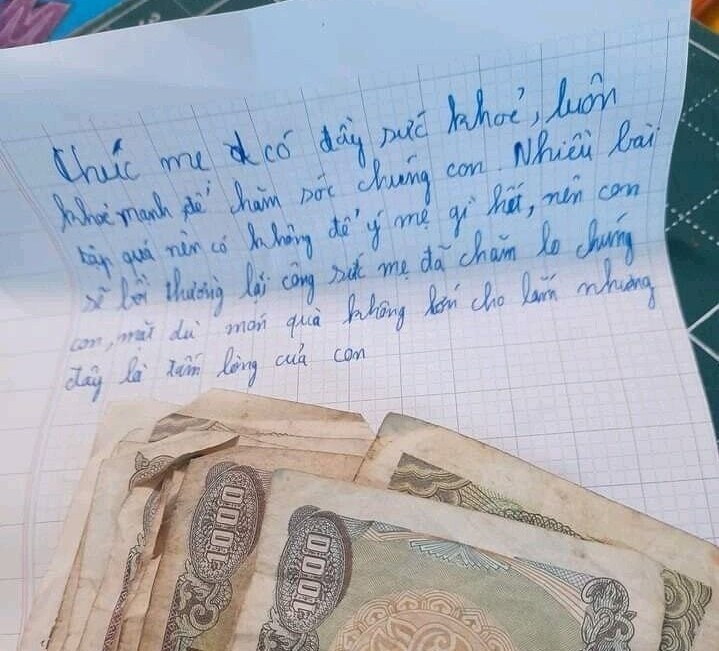 Chúc mẹ có đầy sức khoẻ, luôn
khoẻ mạnh để chăm sóc chúng con. Nhiều bài
tập quá nên có không để ý mẹ gì hết, nên con
sẽ bồi thường lại công sức mẹ đã chăm lo chúng
con, mặt dù món quà không lớn cho lắm nhưng
đây là tấm lòng của con
1000
1000